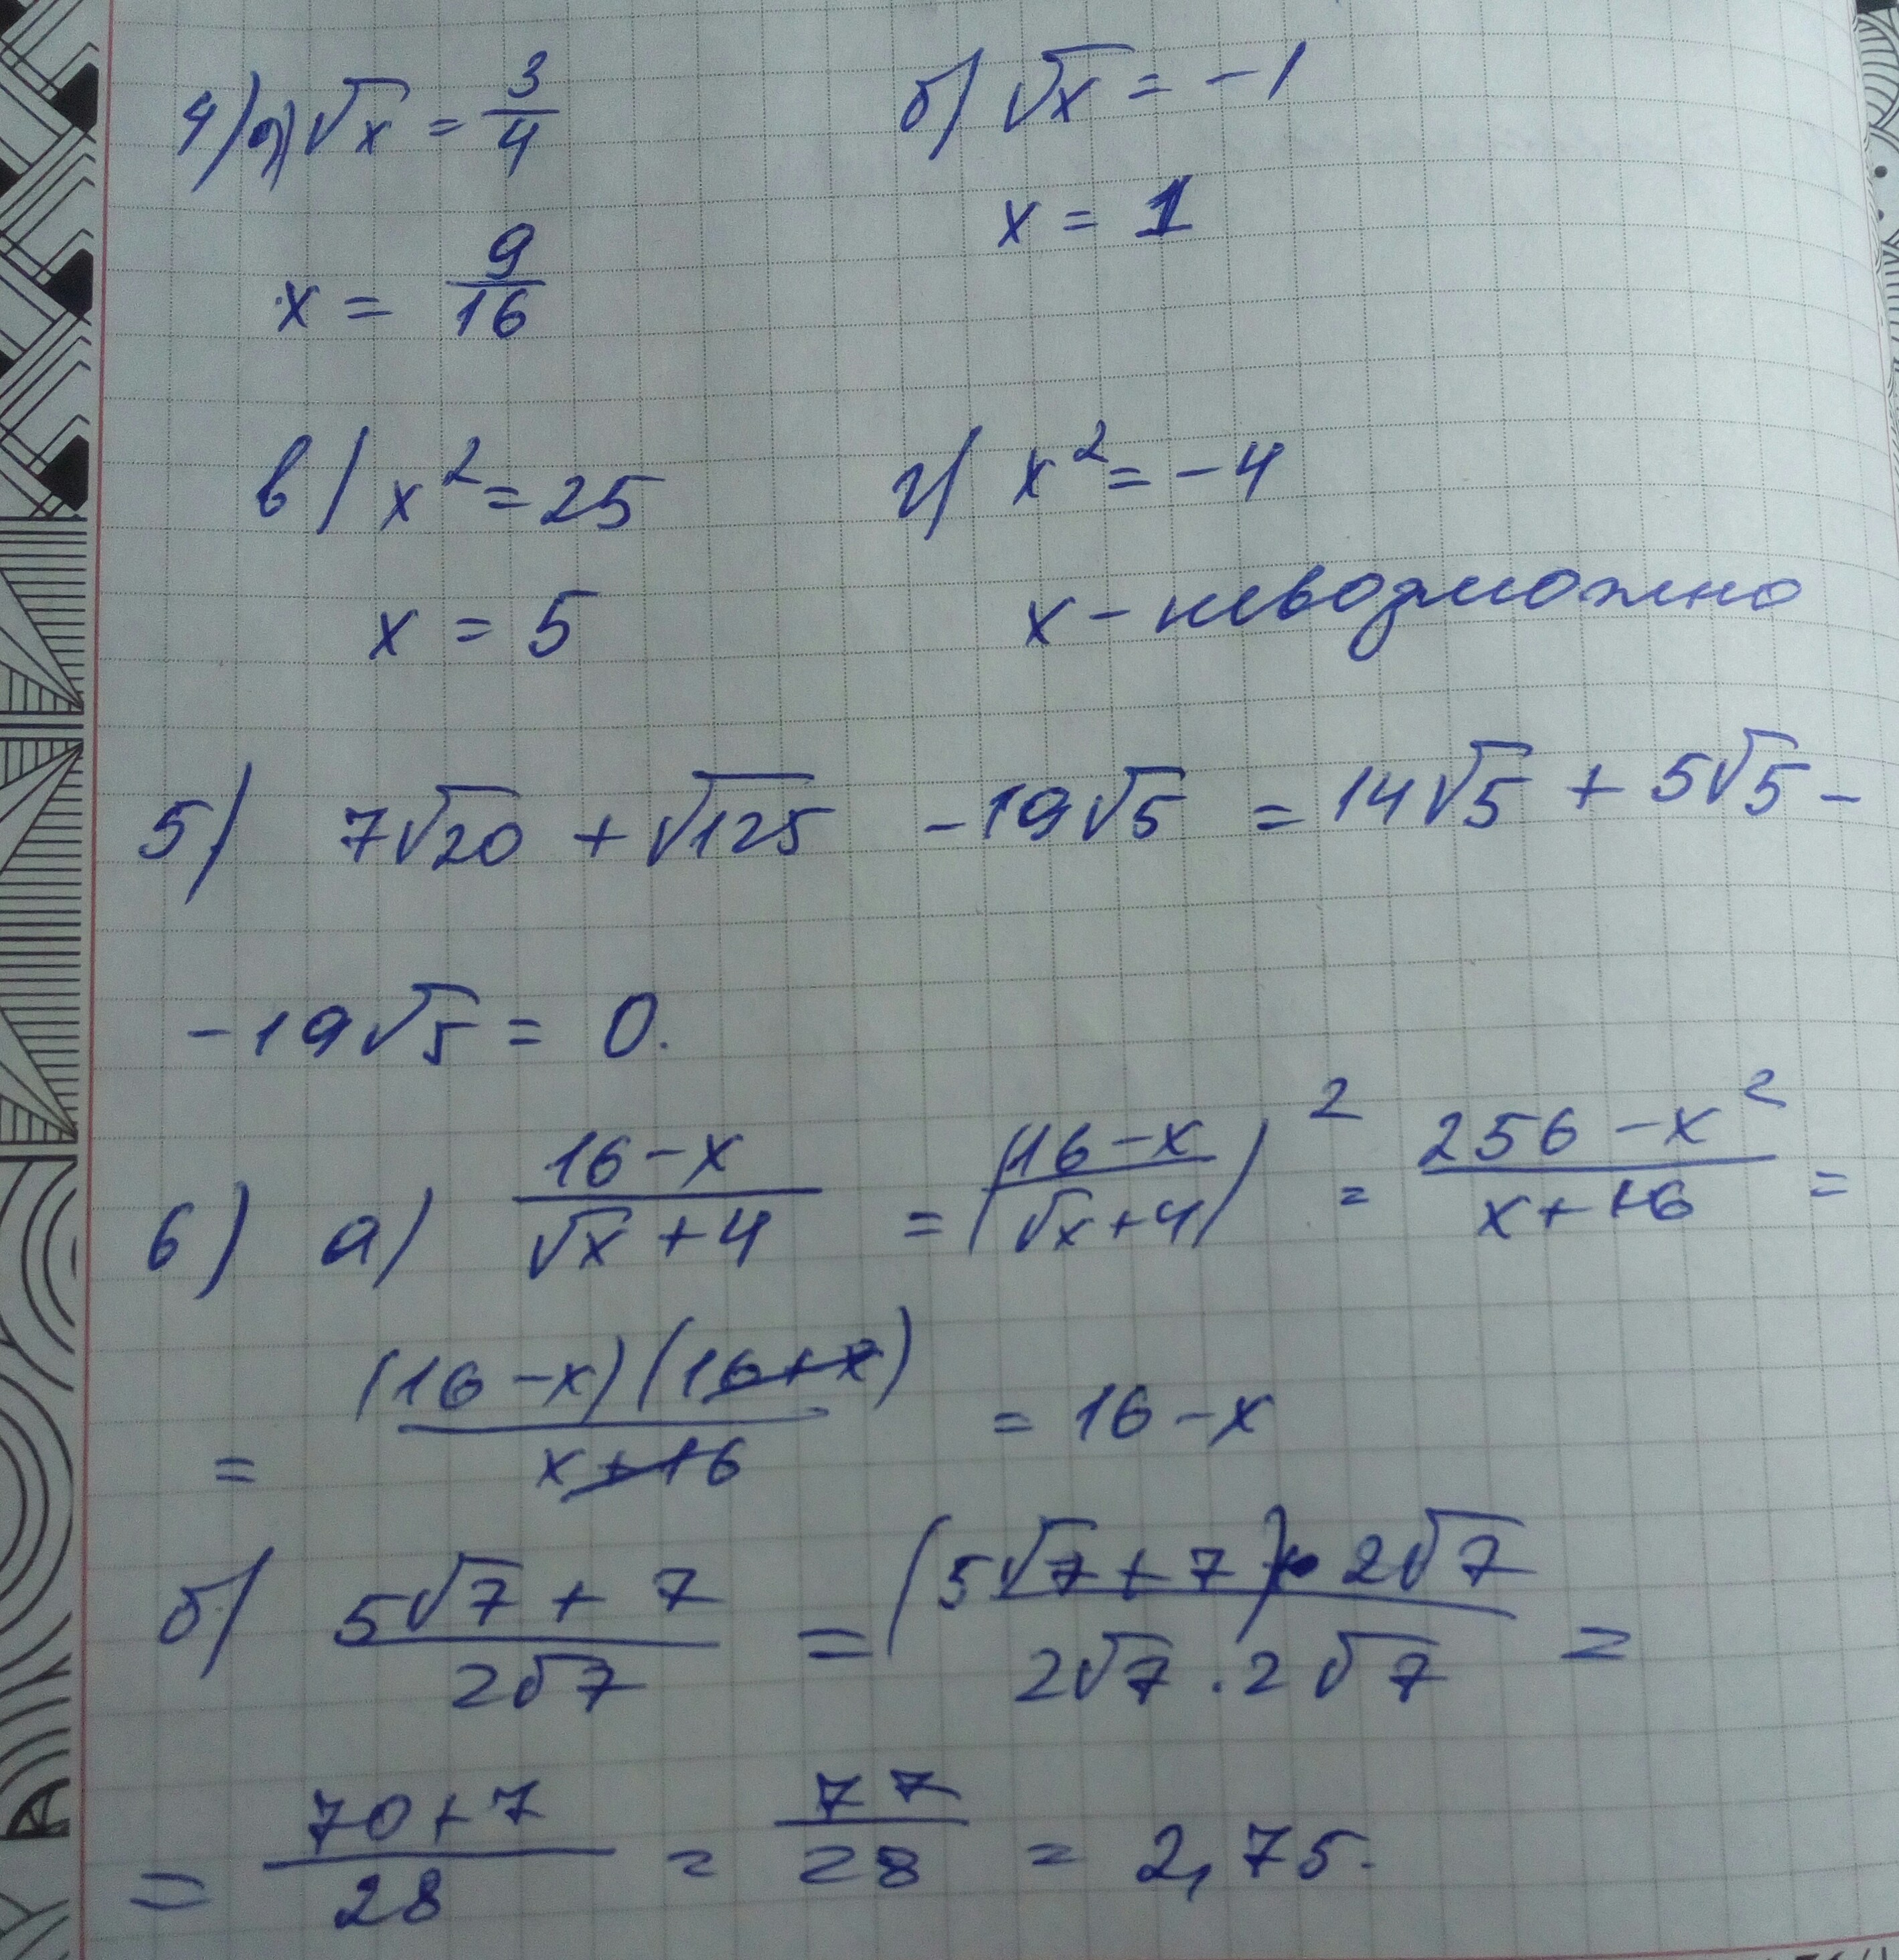 4) а) √x = 3/4 б) √x = -1
x = 9/16 x = 1
в) x² = 25 г) x² = -4
x = 5 x - невозможно
5) 7√20 + √125 - 19√5 = 14√5 + 5√5 -
- 19√5 = 0.
6) а) (16-x)/(√x+4) = ((16-x)/(√x+4))² = (256-x²)/(x+16) =
= ((16-x)(16+x))/(x+16) = 16-x
б) (5√7+7)/(2√7) = ((5√7+7)·2√7)/(2√7·2√7) =
= (70+7)/28 = 77/28 = 2,75.